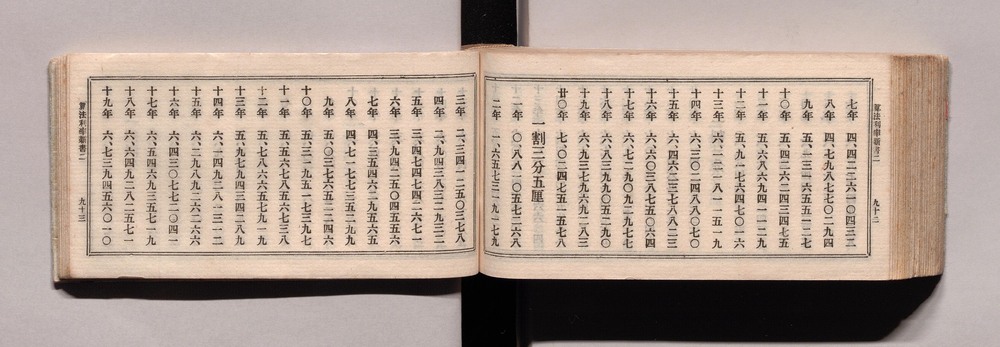 算法利率新書二
九十二
七年 四、四二二六一〇四三二
八年 四、七九八七七〇二九四
九年 五、一三一六五五一二七
十〇年 五、四二六二四三四七五
十一年 五、六八六九四一一二九
十二年 五、九一七六四七〇一六
十三年 六、一二一八一一五一九
十四年 六、三〇二四八八〇七〇
十五年 六、四六二三七八八二三
十六年 六、六〇三八七五〇六四
十七年 六、七二九〇九二九七七
十八年 六、八三九九〇五二九〇
十九年 六、九三七九六九二八三
廿〇年 七、〇二四七五一五七八
一割三分五厘
一年 〇、八八一〇五七二六八
二年 一、六五七三一九一七九
三年 二、三四一二五〇三七八
四年 二、九四三八三二九三二
五年 三、四七四七四二六七一
六年 三、九四二五〇四五六三
七年 四、三五四六二九五六五
八年 四、七一七七三五二九九
九年 五、〇三七六五二二四六
十〇年 五、三一九五一七三九七
十一年 五、五六七八五六七三八
十二年 五、七八六六五七九一九
十三年 五、九七九四三四二八四
十四年 六、一四九二八一三一二
十五年 六、二九八九二六二六六
十六年 六、四三〇七七二〇四一
十七年 六、五四六九三五七一九
十八年 六、六四九二八二五七一
十九年 六、七三九四五六〇一〇
算法利率新書二
九十三